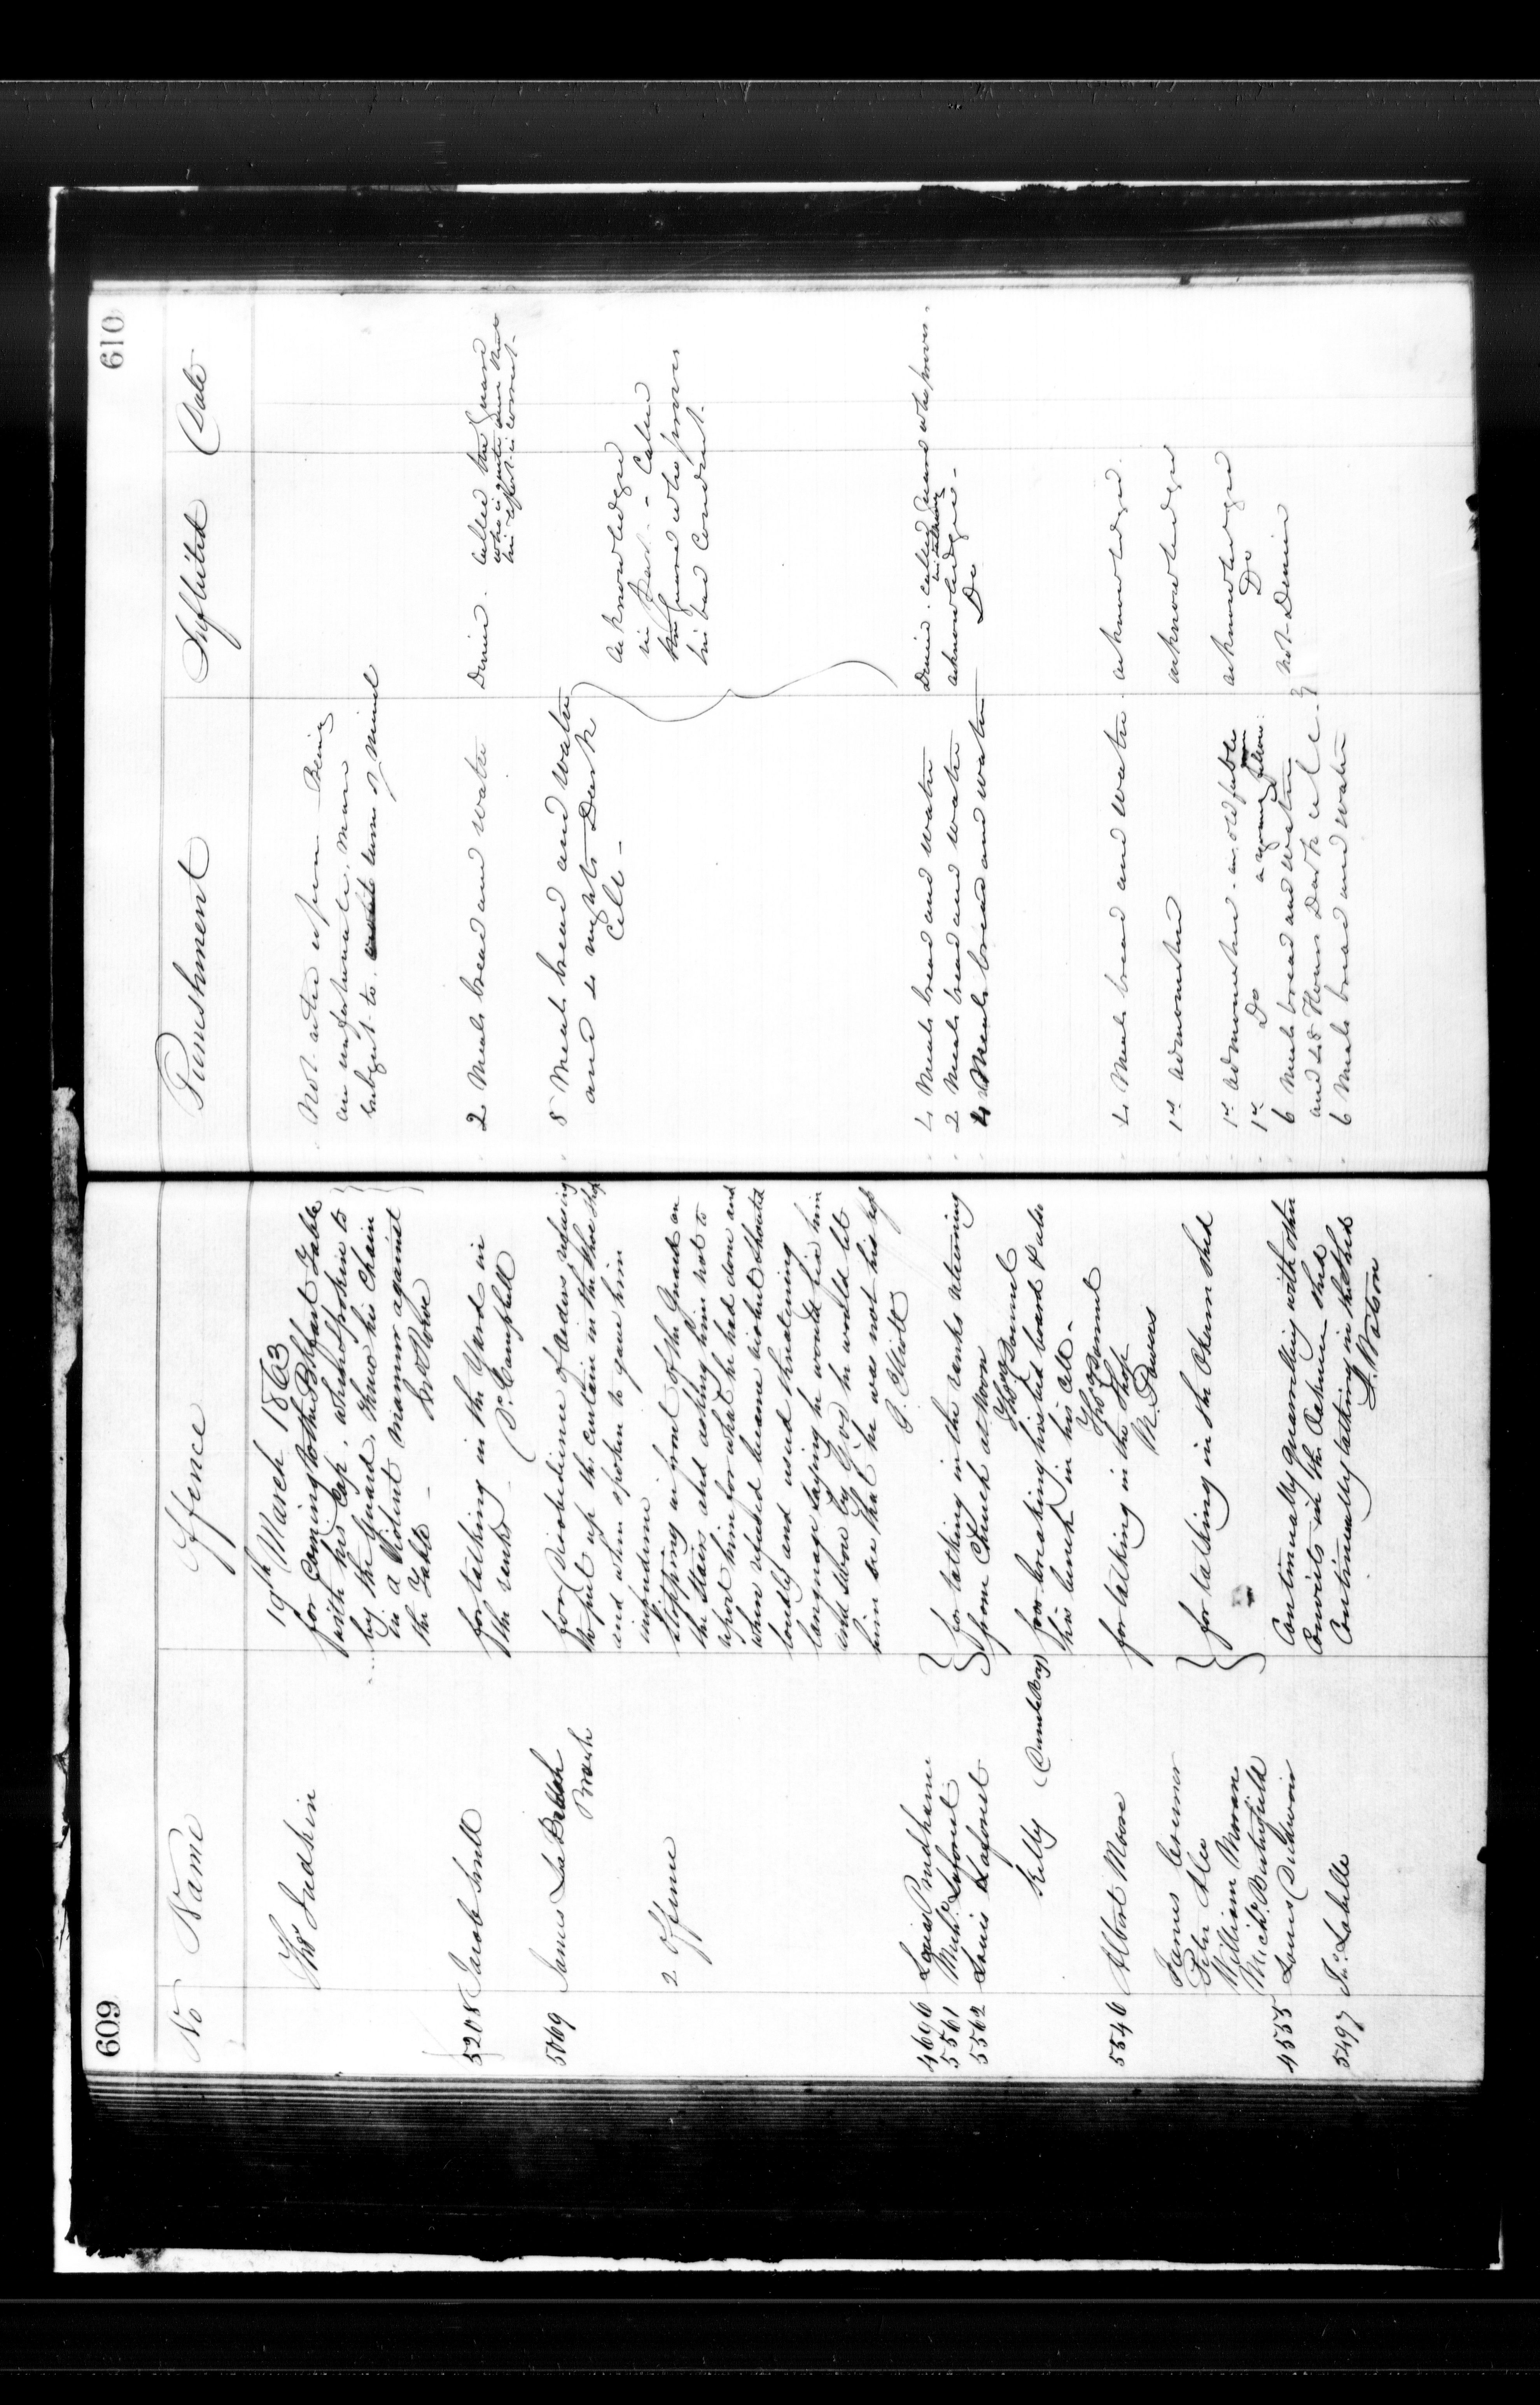 609
No Name Offence
19th March 1863
Thos Judkin for coming to the Breakfast Table
with his Cap, when spoken to
by the Guard, threw his Chair
in a Violent manner against
the Table -
5208 Jacob Smith for talking in the Yard in
the ranks - P. Campbell
5069 James La Belleh for disobedience of orders refusing
Brach to put up the curtain in the Shoe Shop
and when spoken to gave him
insolence
2 Offence Stopping in front of the Guard on
the Stairs and asking him not to
report him for what he had done and
when refused became violent shouted
loudly and used threatening
language saying he would fix him
and swore by God he would let
him see that he was not his
G. Elliott
4696 Louis Prudhomme for talking in the ranks returning
5561 Michl Laforest from Church at Noon
5562 Louis Laforest Thos Bunnel
Kelly for breaking his bed board & also
his bench in his Cell -
Thos Bunnel
5546 Albert Moore for talking in the Shop
M. Davus
James
Peter for talking in the Oakum shed
William Moran
Michl Butterfield
4555 Louis Continually quarrelling with other
Convicts in the Oakum shed
5497 Jno Labelle Continually talking in the shed
Watson
610
Punishment Inflicted Date
Not acted upon - Being
an unfortunate man
subject to turns of mind
2 Meals bread and water Denied. Called the Guard
who is quite sure that
his report is correct -
8 Meals bread and water
and 4 nights Dark
Cell -
acknowledged
in part - - Called
the Guard who proves
his bad Conduct -
4 Meals bread and water Denied. called Guard who proves -
2 Meals bread and water acknowledged -
4 Meals bread and water Do
4 Meals bread and water - acknowledged.
1st admonished acknowledged
1st admonished - an old feeble acknowledged
1st Do Do
6 Meals bread and water
and 48 Hours Dark Cell - not Denied
6 Meals bread and water